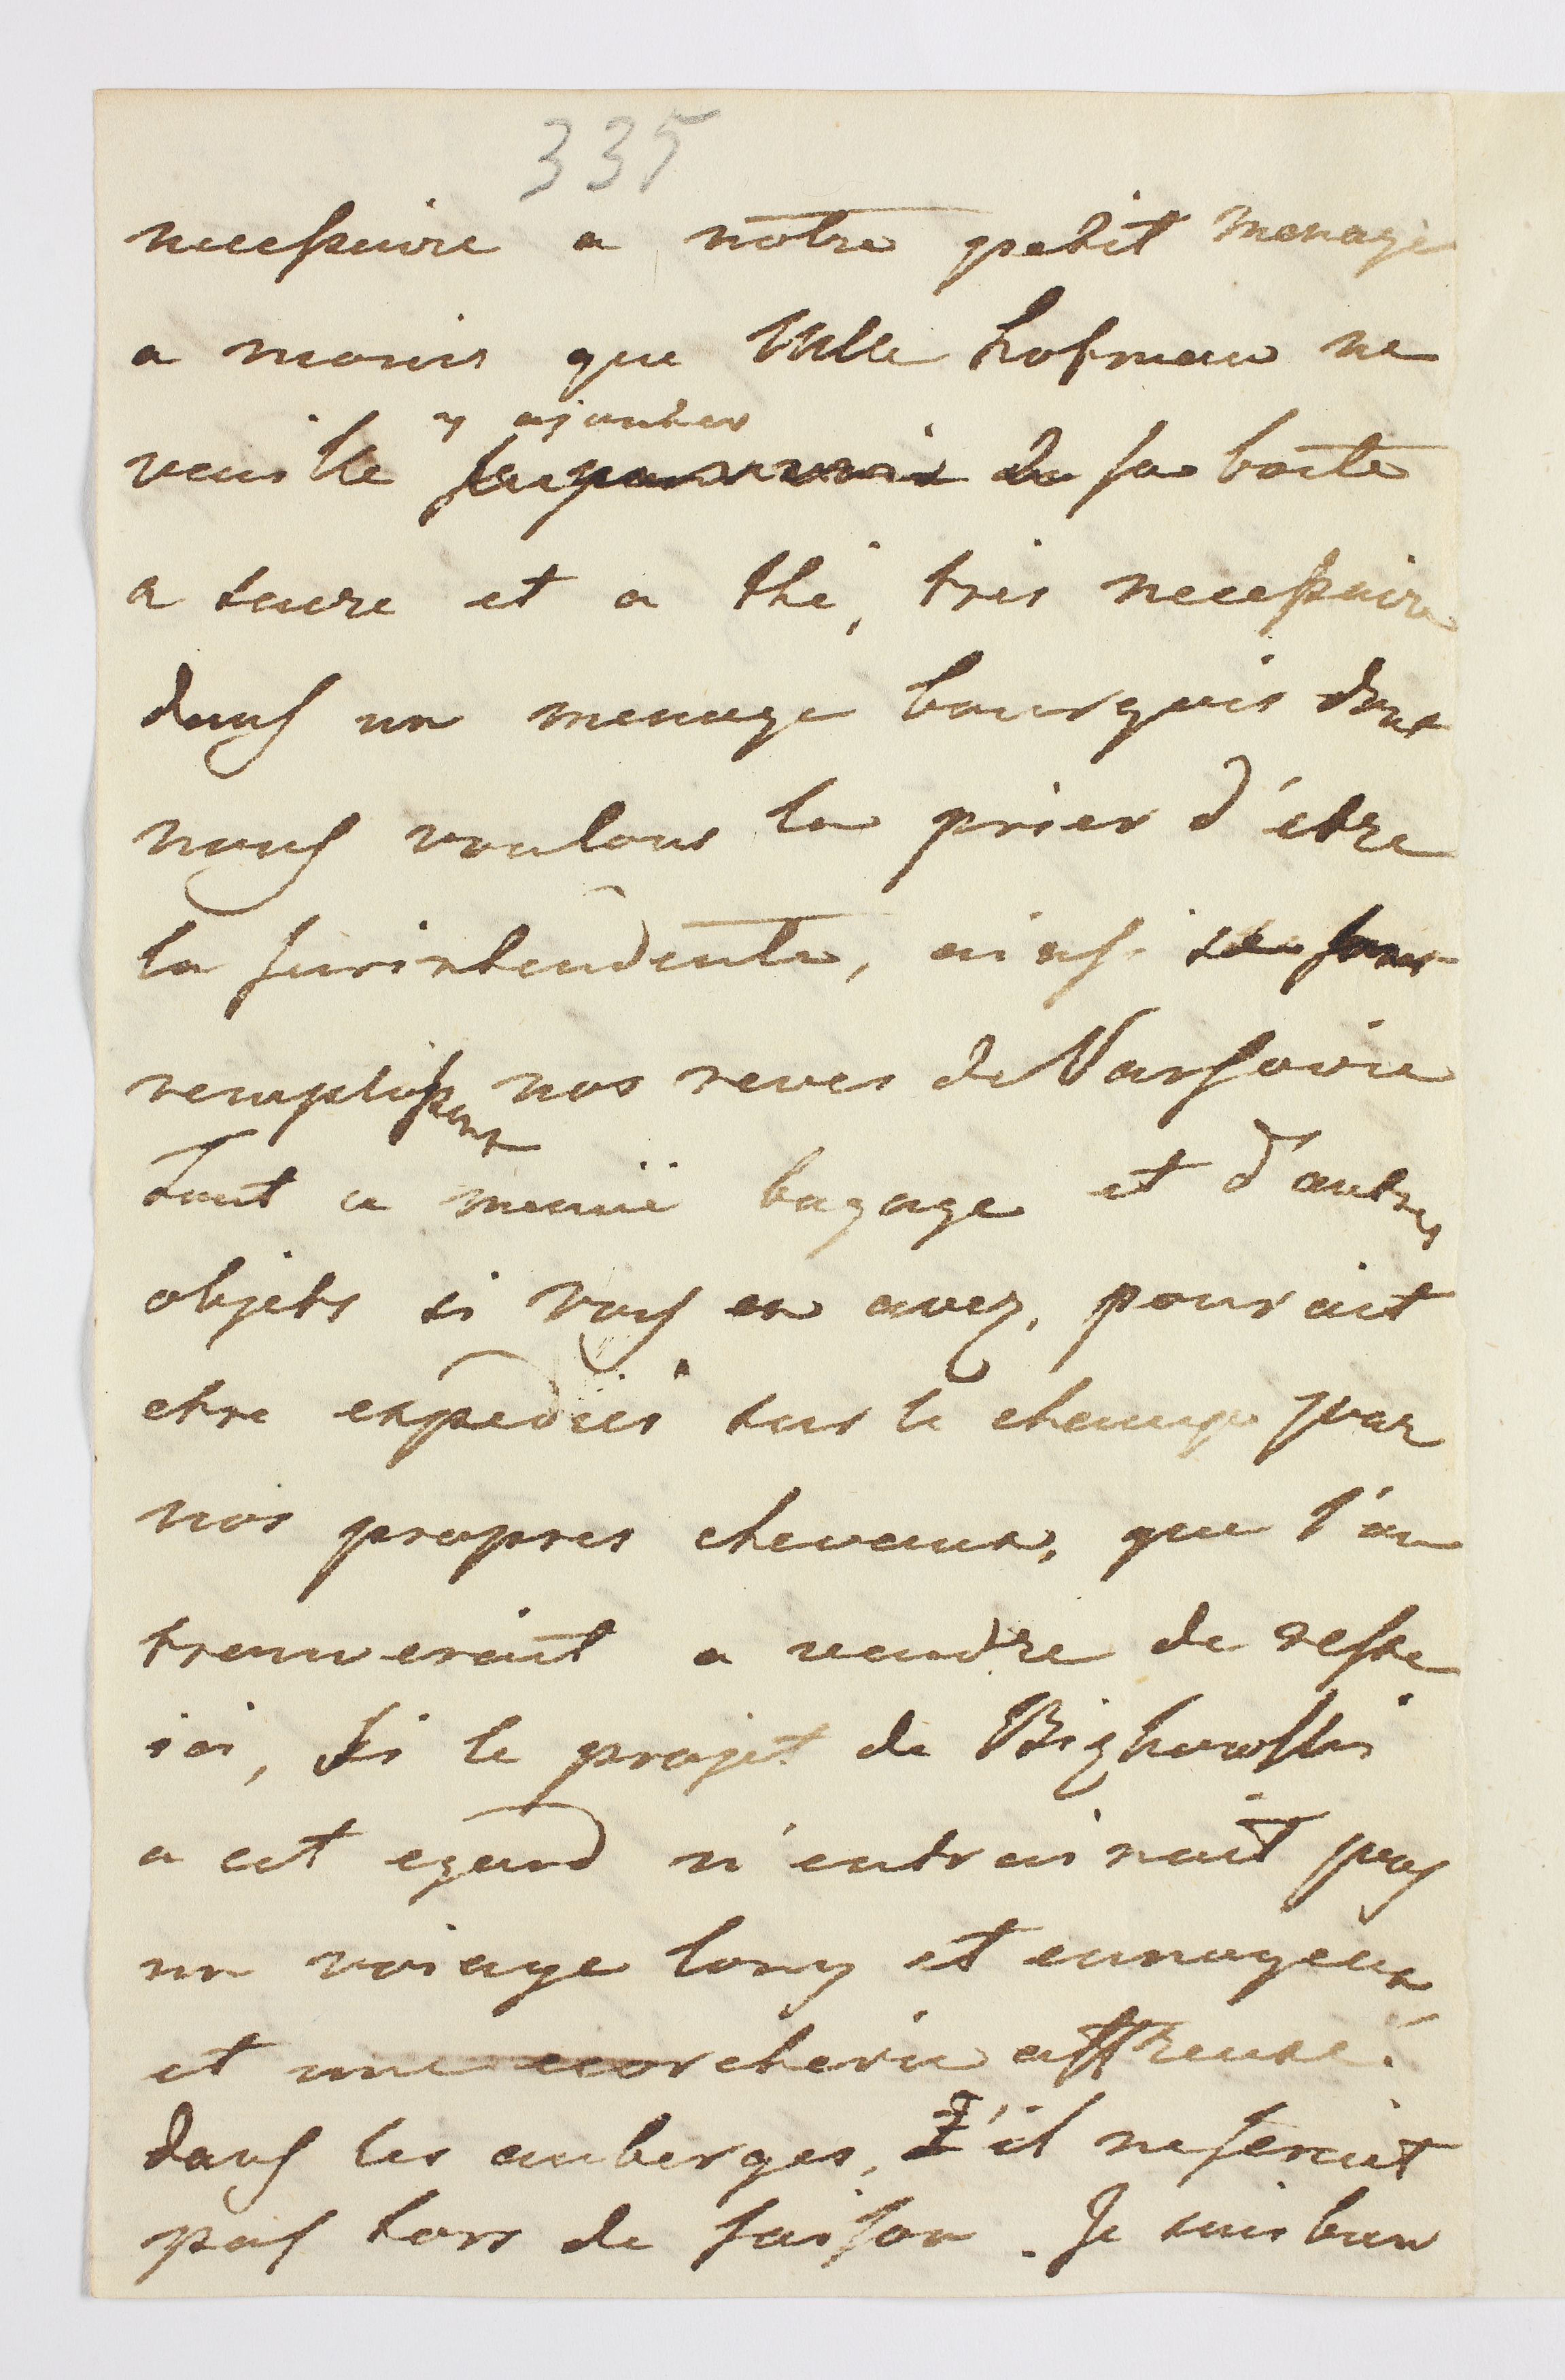 335
necessaire a notre petit menage
a moins que Mlle Hofman ne
y ajouter
veuille sa boite
a sucre et a thé, tres necessaire
dans un menage bourgois dont
nous voulons la prier d'etre
la surintendente, ainsi
remplissant nos reves de Varsovie
Tout ce menüe bagage et d'autres
objets si vous en avez, pourait
etre expediés sur le champ par
nos propres chevaux, que l'on
trouverait a vendre de reste
ici, si le projet de
a cet egard n'entrainait pas
un voiage long et ennuyeux
et une ecorcherie affreuse
dans les auberges, s'il ne serait
pas hors de saison. Je suis bien